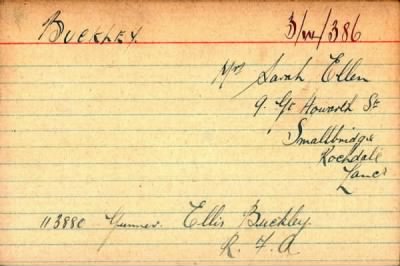 BUCKLEY
3/W/386
Mrs Sarah Ellen
9. Gt Howarth St
Smallbridge
Rochdale
Lancs
113880 Gunner. Ellis Buckley.
R. F. A